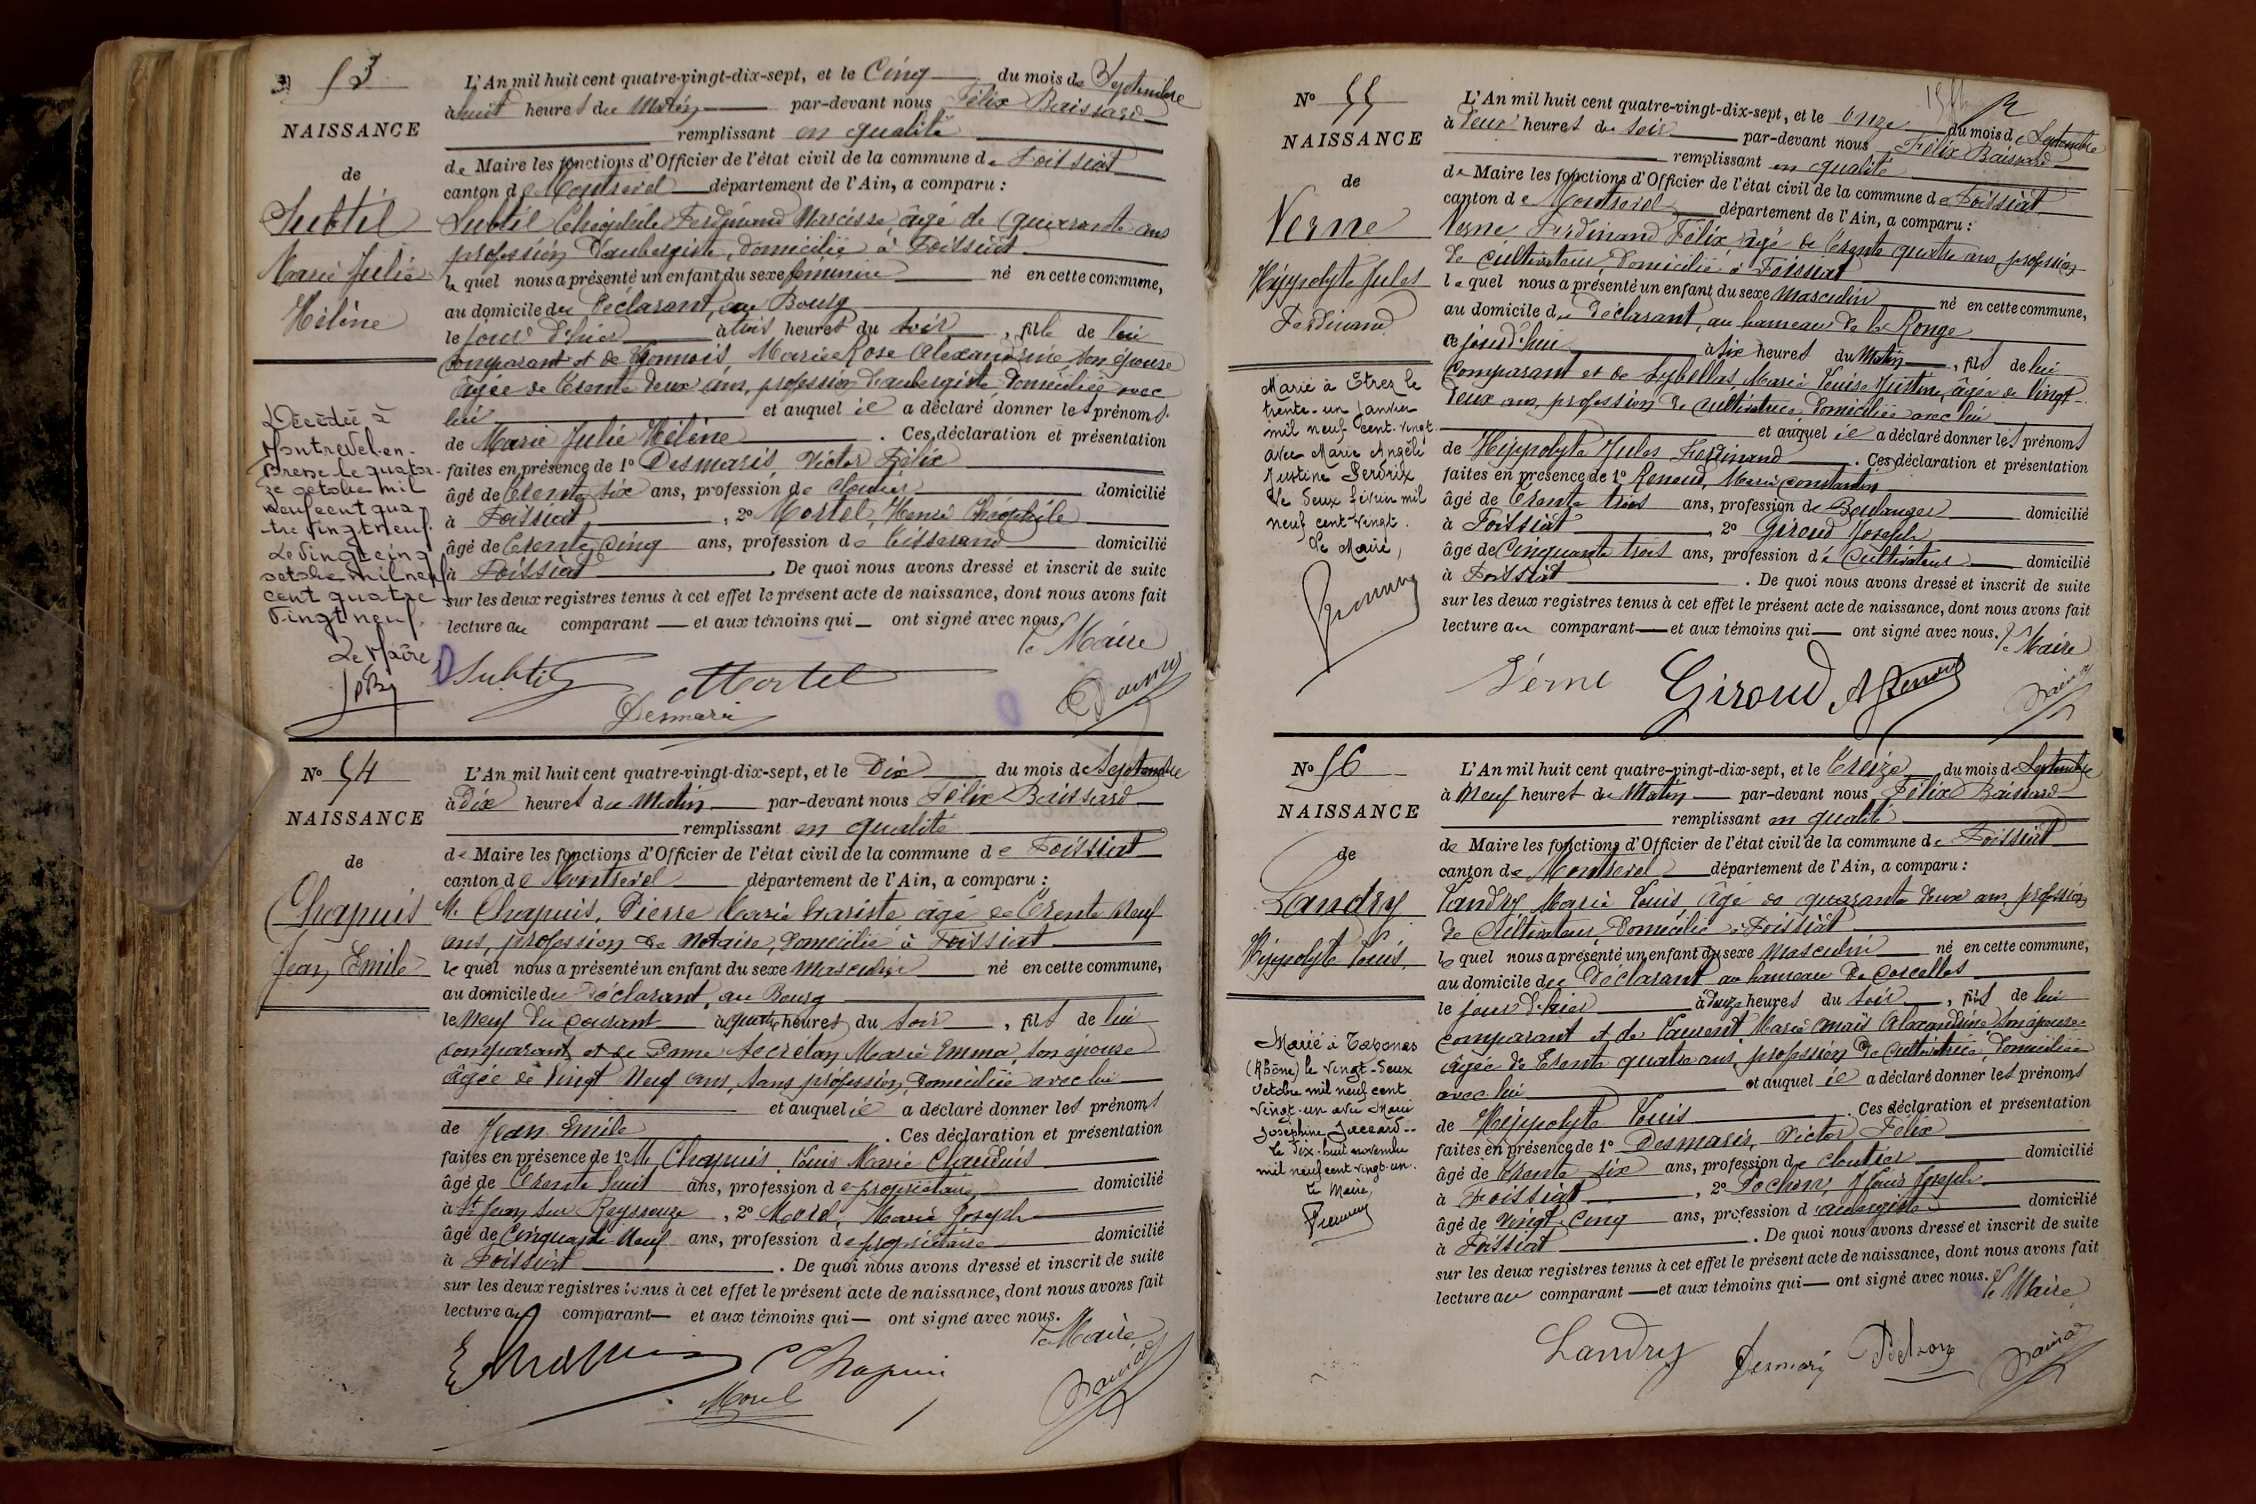 53
NAISSANCE
de
Subtil
Marie Julie
Hélène
L'An mil huit cent quatre-vingt-dix-sept, et le Cinq du mois de Septembre
à huit heures du Matin par-devant nous Félix Baissard
remplissant en qualité
de Maire les fonctions d'Officier de l'état civil de la commune de Foissiat
canton de Montrevel département de l'Ain, a comparu :
Subtil Théophile Ferdinand Narcisse, âgé de quarante ans
profession d'aubergiste, domicilié à Foissiat
le quel nous a présenté un enfant du sexe féminin né en cette commune,
au domicile du déclarant, au Bourg
le jour d'hier à trois heures du soir, fille de lui
comparant et de Marie Rose Alexandrine, son épouse
âgée de trente deux ans, profession d'aubergiste, domiciliée avec
lui et auquel il a déclaré donner les prénoms
de Marie Julie Hélène . Ces déclaration et présentation
faites en présence de 1º Desmaris, Victor Félix
âgé de trente six ans, profession de cloutier domicilié
à Foissiat, 2º Mortel, Henri Théophile
âgé de trente cinq ans, profession de tisserand domicilié
à Foissiat. De quoi nous avons dressé et inscrit de suite
sur les deux registres tenus à cet effet le présent acte de naissance, dont nous avons fait
lecture au comparant et aux témoins qui ont signé avec nous.
Le Maire
Décédée à
Montrevel-en-
Bresse le quator-
ze octobre mil
neuf cent qua-
-tre vingt neuf.
Le vingt cinq
octobre mil neuf
cent quatre
vingt neuf.
Le Maire,
Subtil
Mortel
Desmaris
Nº 54
NAISSANCE
de
Chapuis
Jean Emile
L'An mil huit cent quatre-vingt-dix-sept, et le Dix du mois de Septembre
à Dix heures du Matin par-devant nous Félix Baissard
remplissant en qualité
de Maire les fonctions d'Officier de l'état civil de la commune de Foissiat
canton de Montrevel département de l'Ain, a comparu :
M. Chapuis, Pierre Marie âgé de trente neuf
ans, profession de notaire, domicilié à Foissiat
le quel nous a présenté un enfant du sexe Masculin né en cette commune,
au domicile du déclarant, au Bourg
le neuf du courant à quatre heures du soir, fils de lui
comparant, et de Dame Secrétan Marie Emma, son épouse
âgée de vingt neuf ans, sans profession, domiciliée avec lui
et auquel il a déclaré donner les prénoms
de Jean Emile . Ces déclaration et présentation
faites en présence de 1º M. Chapuis, Louis Marie Claudius
âgé de trente huit ans, profession de propriétaire domicilié
à St Jean sur Reyssouze, 2º Morel, Marie Joseph
âgé de Cinquante neuf ans, profession de propriétaire domicilié
à Foissiat. De quoi nous avons dressé et inscrit de suite
sur les deux registres tenus à cet effet le présent acte de naissance, dont nous avons fait
lecture au comparant et aux témoins qui ont signé avec nous.
Le Maire
Chapuis
Morel
Nº 55
NAISSANCE
de
Verne
Hippolyte Jules
Ferdinand
L'An mil huit cent quatre-vingt-dix-sept, et le onze du mois de Septembre
à deux heures du soir par-devant nous Félix Baissard
remplissant en qualité
de Maire les fonctions d'Officier de l'état civil de la commune de Foissiat
canton de Montrevel département de l'Ain, a comparu :
Verne Ferdinand Félix, âgé de trente quatre ans, profession
de cultivateur, domicilié à Foissiat
le quel nous a présenté un enfant du sexe Masculin né en cette commune,
au domicile du déclarant, au hameau de la Ronge
ce jourd'hui à six heures du Matin, fils de lui
comparant et de Marie Louise Justine, âgée de vingt-
deux ans, profession de cultivatrice, domiciliée avec lui
et auquel il a déclaré donner les prénoms
de Hippolyte Jules Ferdinand . Ces déclaration et présentation
faites en présence de 1º Renoud, Marie Constantin
âgé de trente trois ans, profession de Boulanger domicilié
à Foissiat, 2º Giroud Joseph
âgé de Cinquante trois ans, profession de cultivateur domicilié
à Foissiat. De quoi nous avons dressé et inscrit de suite
sur les deux registres tenus à cet effet le présent acte de naissance, dont nous avons fait
lecture au comparant et aux témoins qui ont signé avec nous.
Le Maire
Marié à Etrez le
trente-un Janvier
mil neuf cent-vingt
avec Marie Angèle
Justine Perdrix
Le deux février mil
neuf cent-vingt.
Le Maire,
Verne
Giroud
Nº 56
NAISSANCE
de
Landry
Hippolyte Louis
L'An mil huit cent quatre-vingt-dix-sept, et le treize du mois de Septembre
à neuf heures du Matin par-devant nous Félix Baissard
remplissant en qualité
de Maire les fonctions d'Officier de l'état civil de la commune de Foissiat
canton de Montrevel département de l'Ain, a comparu :
Landry Marie Louis âgé de quarante deux ans profession
de cultivateur domicilié à Foissiat
le quel nous a présenté un enfant du sexe Masculin né en cette commune,
au domicile du déclarant au hameau de Corcelles
le jour d'hier à heures du soir, fils de lui
comparant et de Laurent Marie Alexandrine, son épouse
âgée de trente quatre ans, profession de cultivatrice, domiciliée
avec lui et auquel il a déclaré donner les prénoms
de Hippolyte Louis . Ces déclaration et présentation
faites en présence de 1º Desmaris, Victor Félix
âgé de trente six ans, profession de cloutier domicilié
à Foissiat, 2º Joseph
âgé de vingt-cinq ans, profession d'aubergiste domicilié
à Foissiat. De quoi nous avons dressé et inscrit de suite
sur les deux registres tenus à cet effet le présent acte de naissance, dont nous avons fait
lecture au comparant et aux témoins qui ont signé avec nous.
Le Maire
Marié à
(Rhône) le vingt-deux
octobre mil neuf cent
vingt-un avec Marie
Joséphine Jaccard
Le dix-huit novembre
mil neuf cent vingt-un.
Le Maire,
Landry
Desmaris